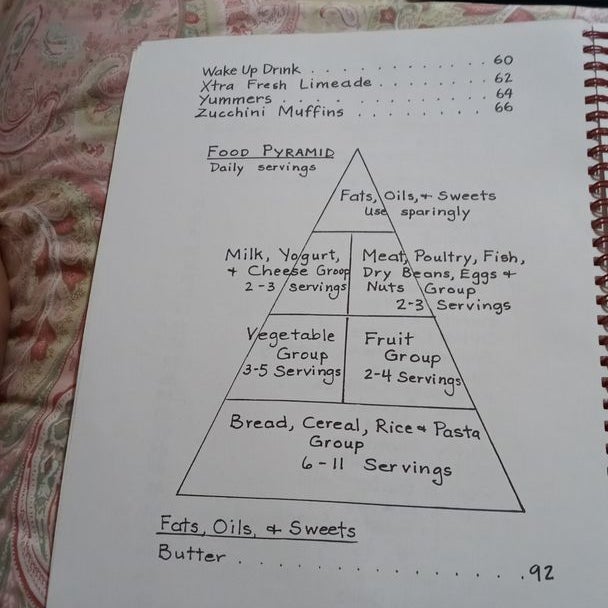 Wake Up Drink . . . . . . . . . . . . 60
Xtra Fresh Limeade . . . . . . . . 62
Yummers . . . . . . . . . . . . . . 64
Zucchini Muffins . . . . . . . . . 66
FOOD PYRAMID
Daily servings
Fats, Oils, + Sweets
Use sparingly
Milk, Yogurt,
+ Cheese Group
2-3 servings
Meat, Poultry, Fish,
Dry Beans, Eggs +
Nuts Group
2-3 Servings
Vegetable
Group
3-5 Servings
Fruit
Group
2-4 Servings
Bread, Cereal, Rice + Pasta
Group
6-11 Servings
Fats, Oils, & Sweets
Butter . . . . . . . . . . . . . . . . 92